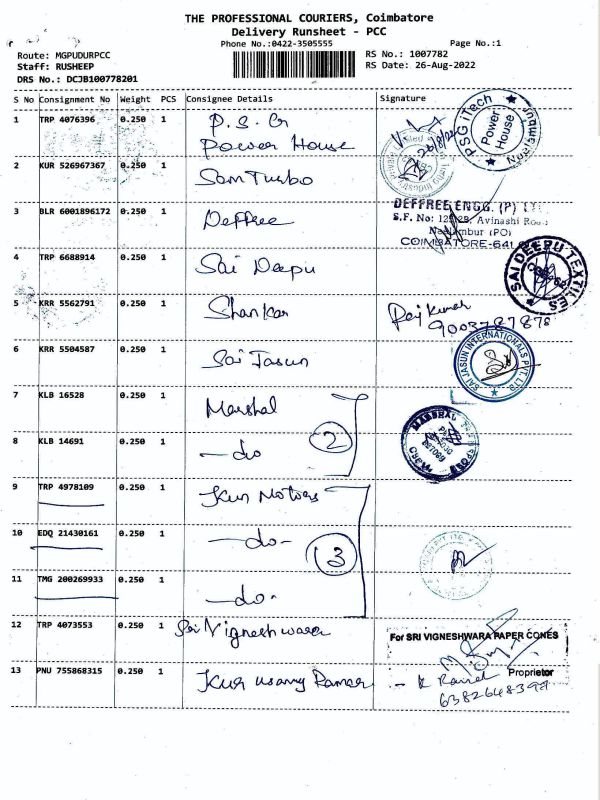 THE PROFESSIONAL COURIERS, Coimbatore
Delivery Runsheet - PCC
Phone No.:0422-3505555
Page No.:1
Route: MGPUDURPCC
RS No.: 1007782
Staff: RUSHEEP
RS Date: 26-Aug-2022
DRS No.: DCJB100778201
S No Consignment No Weight PCS Consignee Details Signature
1 TRP 4076396 0.250 1 P.S.G
Power House
26/8/22
PSG iTech
Power House
2 KUR 526967367 0.250 1 Sam Turbo
3 BLR 6001896172 0.250 1 Deffree
DEFFREE ENGG. (P) LTD
Avinashi Road
(PO)
COIMBATORE-641
4 TRP 6688914 0.250 1 Sai Deepu
SAI DEEPU TEXTILES
5 KRR 5562791 0.250 1 Shankar Rajkumar
9003787878
6 KRR 5504587 0.250 1 Sai Jasun
SAI JASUN INTERNATIONALS PVT. LTD
7 KLB 16528 0.250 1 Marshal
2
8 KLB 14691 0.250 1 -do
9 TRP 4978109 0.250 1 Kun Motors
10 EDQ 21430161 0.250 1 -do-
3
11 TMG 200269933 0.250 1 -do-
12 TRP 4073553 0.250 1 Sri Vigneshwara
For SRI VIGNESHWARA PAPER CONES
Proprietor
13 PNU 755868315 0.250 1